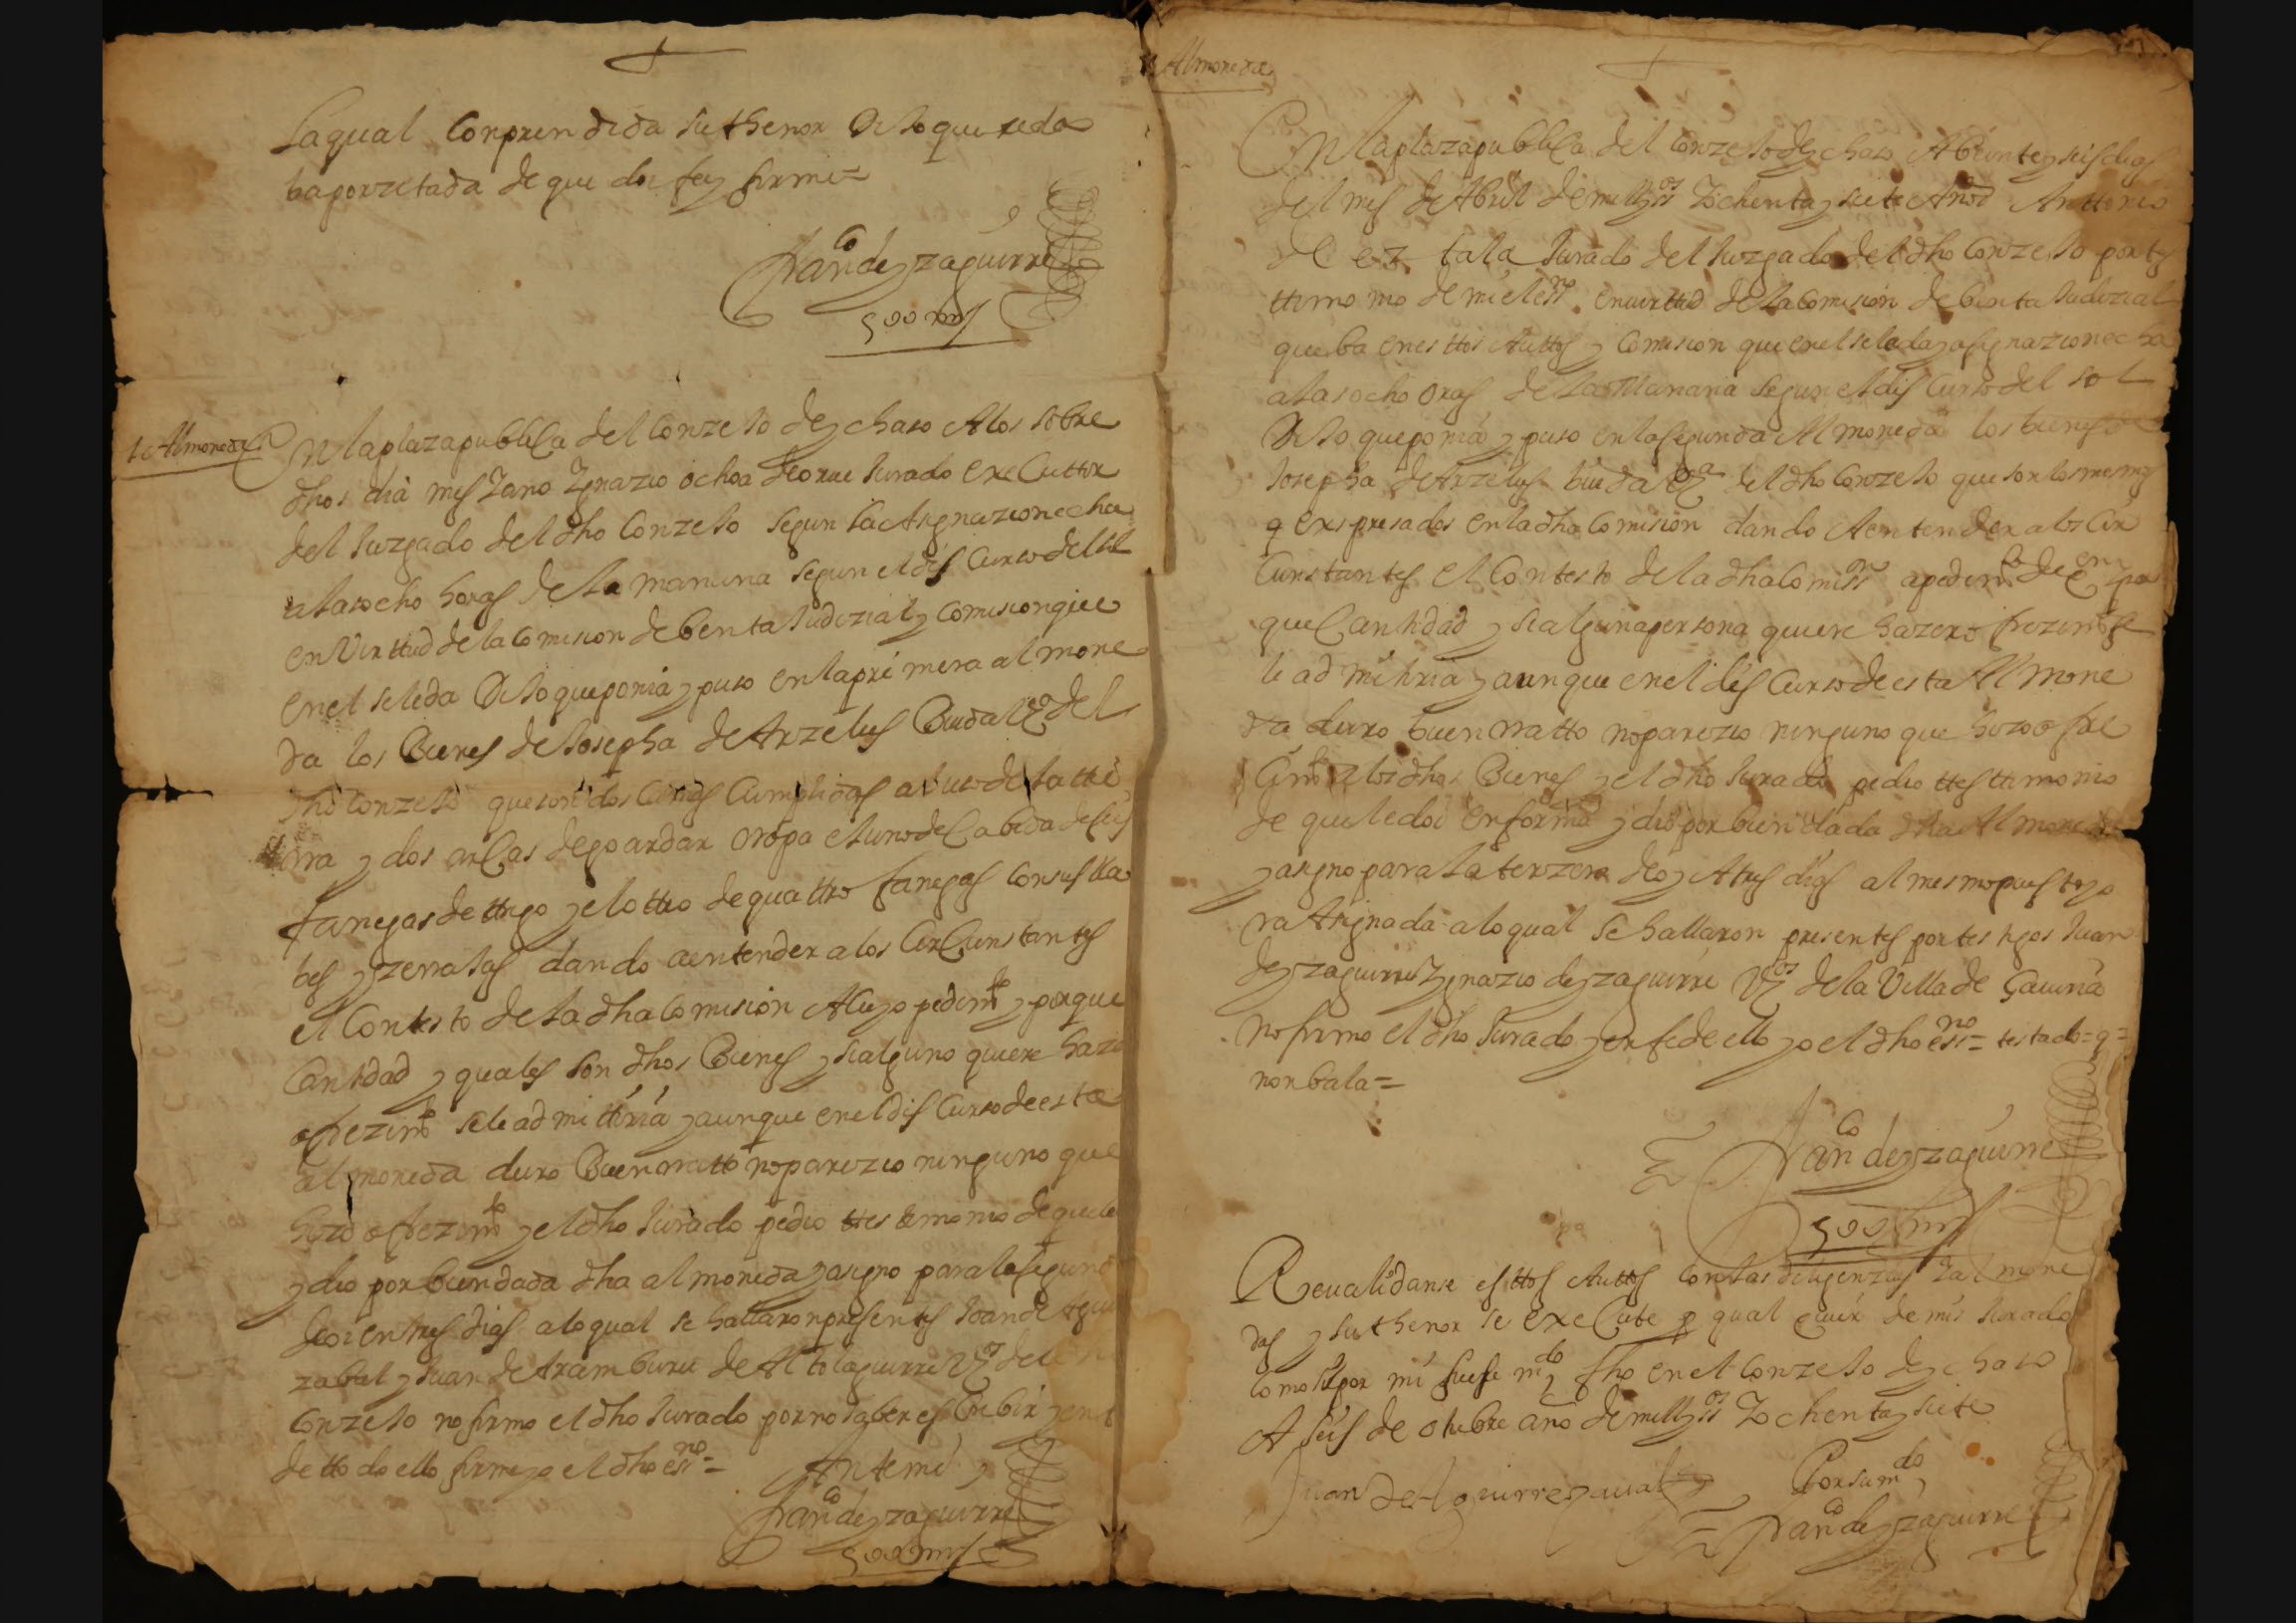 La qual Conprendida su thenor Dijo que se da
ba por zetada de que doi fee y firme=
Fran.co de yzaguirre
500 mrs
1a Almoneda
En la plaza publica del Conzejo de ychaso A los sobre
dhos dia mes y ano Ygnazio ochoa de orue Jurado exeCuttor
del Juzgado del dho Conzejo segun la Asignazion echa
a las ocho horas de la manana segun el disCurso del sol
en Virttud de la Comision de benta Judizial y Comision que
en el se le da Dijo que ponia y puso en la primera almone
da los Bienes de Josepha de Arzelus Biuda Vz.a del
dho Conzejo que son dos Camas Cumplidas a uso de la tie
rra y dos arCas de goardar Oropa el uno de Cabida de seis
fanegas de ttrigo y el otto de quattro fanegas con sus lla
bes y zerrajas dando a entender a los CirCunstantes
el Contesto de la dha Comision A Cuyo pedim.to y por que
Cantidad y quales son dhos Bienes y si alguno quiere hazer
ofrezim.to se le admittiria y aunque en el disCurso de esta
almoneda duro Buen rratto no parezio ninguno que
hizo ofrezim.to y el dho Jurado pedio ttestimonio de que le
y dio por bien dada dha almoneda y asigno para la segunda
de oi en tres dias a lo qual se hallaron presentes Joan de Aguirre
zabal y Juan de Aramburu de Altolaguirre Vz.os del
Conzejo no firmo el dho Jurado por no saber esCribir y en fee
de ttodo ello firme yo el dho ess.no=
Ante mi
Fran.co de yzaguirre
500 mrs
Almoneda
En la plaza publica del Conzejo de ychaso A beinte y seis dias
del mes de Abril de mill y s.os y ochenta y siete Anos Anttonio
de ez tala Jurado del Juzgado del dho Conzejo por tes
ttimonio de mi el ess.no en uirttud de la Comision de benta Judizial
que ba en esttos Auttos y Comision que en el se le da y asignazion echa
a las ocho oras de la Manana segun el disCurso del sol
Dijo que ponia y puso en la segunda Almoneda los bienes de
Josepha de Arzelus biuda Vz.a del dho Conzejo que son los mesmos
q expresados en la dha Comision dando A entender a los Cir
Cunstantes el Contesto de la dha Comiss.n a pedim.to de en por
que Cantidad y si alguna persona quiere hazer ofrezim.to se
le admitiria y aunque en el disCurso de esta Almone
da duro buen rratto no parezio ninguno que hizo ofre
Cim.to a los dhos Bienes y el dho Jurado pedio ttesttimonio
de que le doi en forma y dio por bien dada dha Almoneda
y asigno para la terzera de oy A tres dias al mesmo puesto y o
ra Asignada a lo qual se hallaron presentes por testigos Juan
de yzaguirre Ygnazio de yzaguirre Vz.os de la Villa de Gauiria
no firmo el dho Jurado y en fe de ello yo el dho ess.no= testado=q=
non bala=
Fran.co de yzaguirre
500 mrs
Reualidanse esttos Auttos Con las diligenzias y almone
das y su thenor se exeCute p qual quier de mis Jurados
Como si por mi fuese m.do fho en el Conzejo de ychaso
A seis de otubre ano de mill y s.os y ochenta y siete
Juan de Aguirre zaual
Por su m.do
Fran.co de yzaguirre